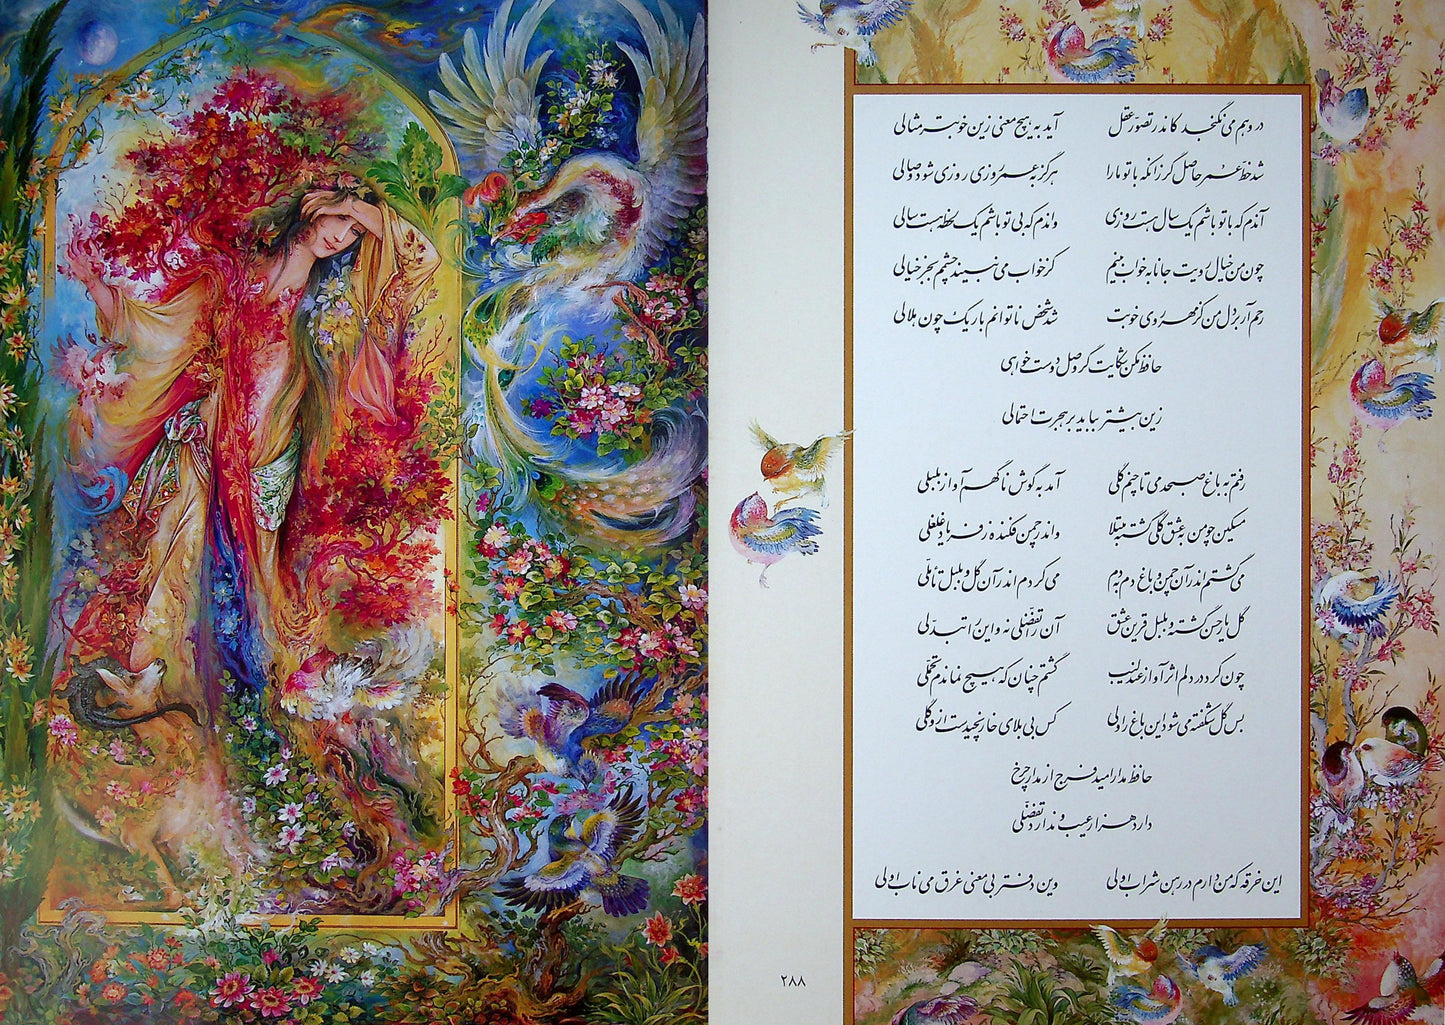 در وهم می نگنجد کاندر تصور عقل آید به هیچ معنی زین خوبتر مثالی
شد حظّ عمر حاصل گر زانکه با تو ما را هرگز به عمر روزی روزی شود وصالی
آندم که با تو باشم یک سال هست روزی واندم که بی تو باشم یک لحظه هست سالی
چون من خیال رویت جانا به خواب بینم کز خواب می نبیند چشمم بجز خیالی
رحم آر بر دل من کز مهر روی خوبت شد شخص ناتوانم باریک چون هلالی
حافظ مکن شکایت گر وصل دوست خواهی
زین بیشتر بباید بر هجرت احتمالی
رفتم به باغ صبحدمی تا چنم گلی آمد به گوش ناگهم آواز بلبلی
مسکین چو من به عشق گلی گشته مبتلا واندر چمن فکنده ز فریاد غلغلی
می گشتم اندر آن چمن و باغ دم به دم می کردم اندر آن گل و بلبل تأمّلی
گل یار حسن گشته و بلبل قرین عشق آن را تفضّلی نه و این را تبدّلی
چون کرد در دلم اثر آواز عندلیب گشتم چنان که هیچ نماندم تحمّلی
بس گل شکفته می شود این باغ را ولی کس بی بلای خار نچیدست ازو گلی
حافظ مدار امید فرج از مدار چرخ
دارد هزار عیب و ندارد تفضّلی
این خرقه که من دارم در رهن شراب اولی وین دفتر بی معنی غرق می ناب اولی
۲۸۸